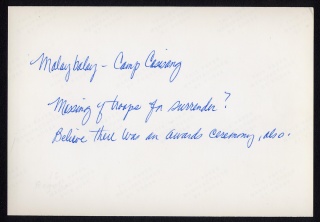 Malaybalay - Camp Casisang
Massing of troops for surrender?
Believe there was an awards ceremony, also.